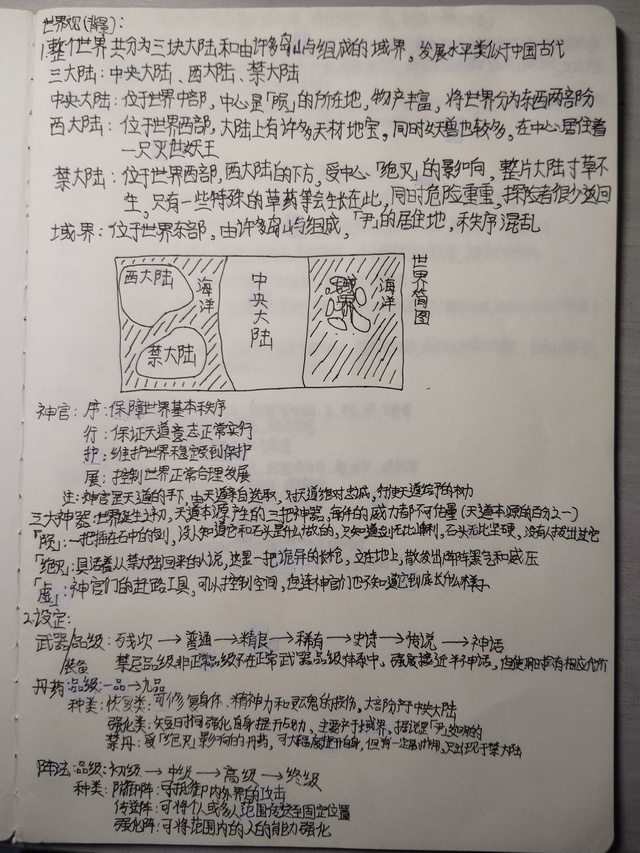 世界观(背景):
1.整个世界共分为三块大陆和由许多岛屿组成的域界,发展水平类似于中国古代
三大陆:中央大陆、西大陆、禁大陆
中央大陆:位于世界中部,中心是「陨」的所在地,物产丰富,将世界分为东西两部份
西大陆:位于世界西部,大陆上有许多天材地宝,同时妖兽也较多,在中心居住着
一只灭世妖王
禁大陆:位于世界西部,西大陆的下方,受中心「绝灭」的影响,整片大陆寸草不
生,只有一些特殊的草药等会生长在此,同时危险重重,探险者很少返回
域界:位于世界东部,由许多岛屿组成,「尹」的居住地,秩序混乱
西大陆
海洋
禁大陆
中央大陆
域界
海洋
世界简图
神官:序:保障世界基本秩序
行:保证天道意志正常实行
护:维护世界稳定受到保护
展:控制世界正常合理发展
注:神官是天道的手下,由天道亲自选取,对天道绝对忠诚,行使天道给予的权力
三大神器:世界诞生之初,天道本源产生的三把神器,每件的威力都不可估量(天道本源的百分之一)
「陨」:一把插在石中的剑,没人知道它和石头是什么做的,只知道剑无比锋利,石头无比坚硬,没有人拔出过它
「绝灭」:具活着从禁大陆回来的人说,这是一把诡异的长枪,立在地上,散发出阵阵黑气和威压
「虚」:神官们的赶路工具,可以控制空间,但连神官们也不知道它到底长什么样子
2.设定:
武器/品级:残次→普通→精良→稀有→史诗→传说→神话
装备 禁忌品级非正常品级不在正常武器品级体系中,强度接近半神话,但使用时会有相应代价
丹药:品级:一品→九品
种类:恢复类:可修复身体、精神力和灵魂的损伤,大部分产于中央大陆
强化类:短时间强化自身提升战力、主要产于域界、据说是「尹」
禁丹:受「绝灭」影响的丹药,可大幅度提升自身,但有一定副作用,只出现于禁大陆
阵法:品级:初级→中级→高级→终级
种类:防御阵:可抵御内外界的攻击
传送阵:可将个人或多人范围传送至固定位置
强化阵:可将范围内的人的能力强化